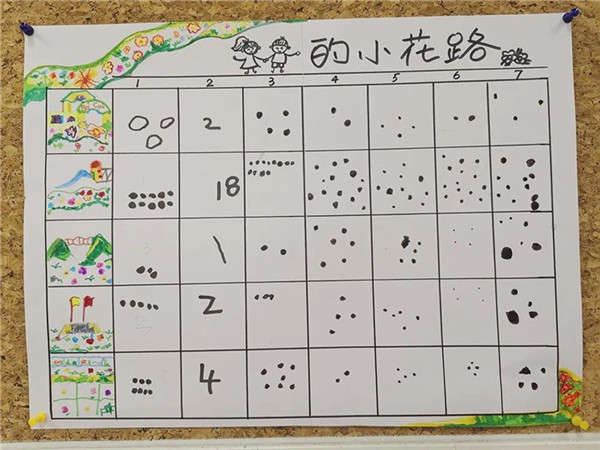 的小花路
1 2 3 4 5 6 7
2
18
3 1
3 2
4